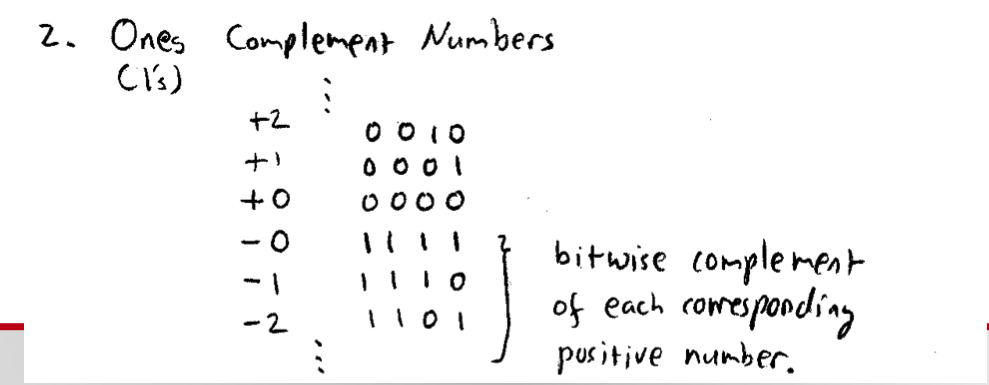 2. Ones Complement Numbers
(1's)
⋮
+2 0010
+1 0001
+0 0000
-0 1111
-1 1110
-2 1101
⋮
bitwise complement
of each corresponding
positive number.